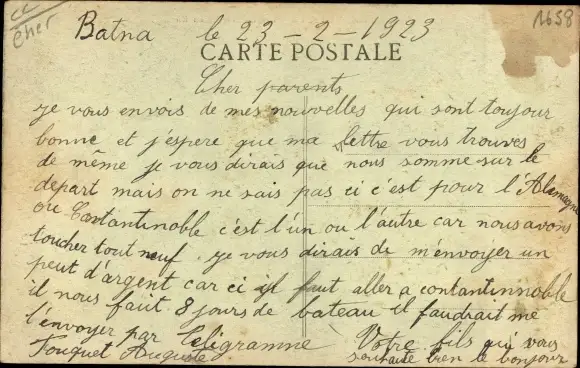 Cher
1658
Batna le 23-2-1923
CARTE POSTALE
Cher parents
je vous envois de mes nouvelles qui sont toujour
bonne et j'espere que ma lettre vous trouves
de même je vous dirais que nous somme sur le
depart mais on ne sais pas ci c'est pour l'Alemagne
ou Contantinoble c'est l'un ou l'autre car nous avons
toucher tout neuf. je vous dirais de m'envoyer un
peut d'argent car ci il faut aller a contantinnoble
il nous faut 8 jours de bateau il faudrait me
l'envoyer par Teligramne Votre fils qui vous
Fouquet Auguste souhaite bien le bonjour